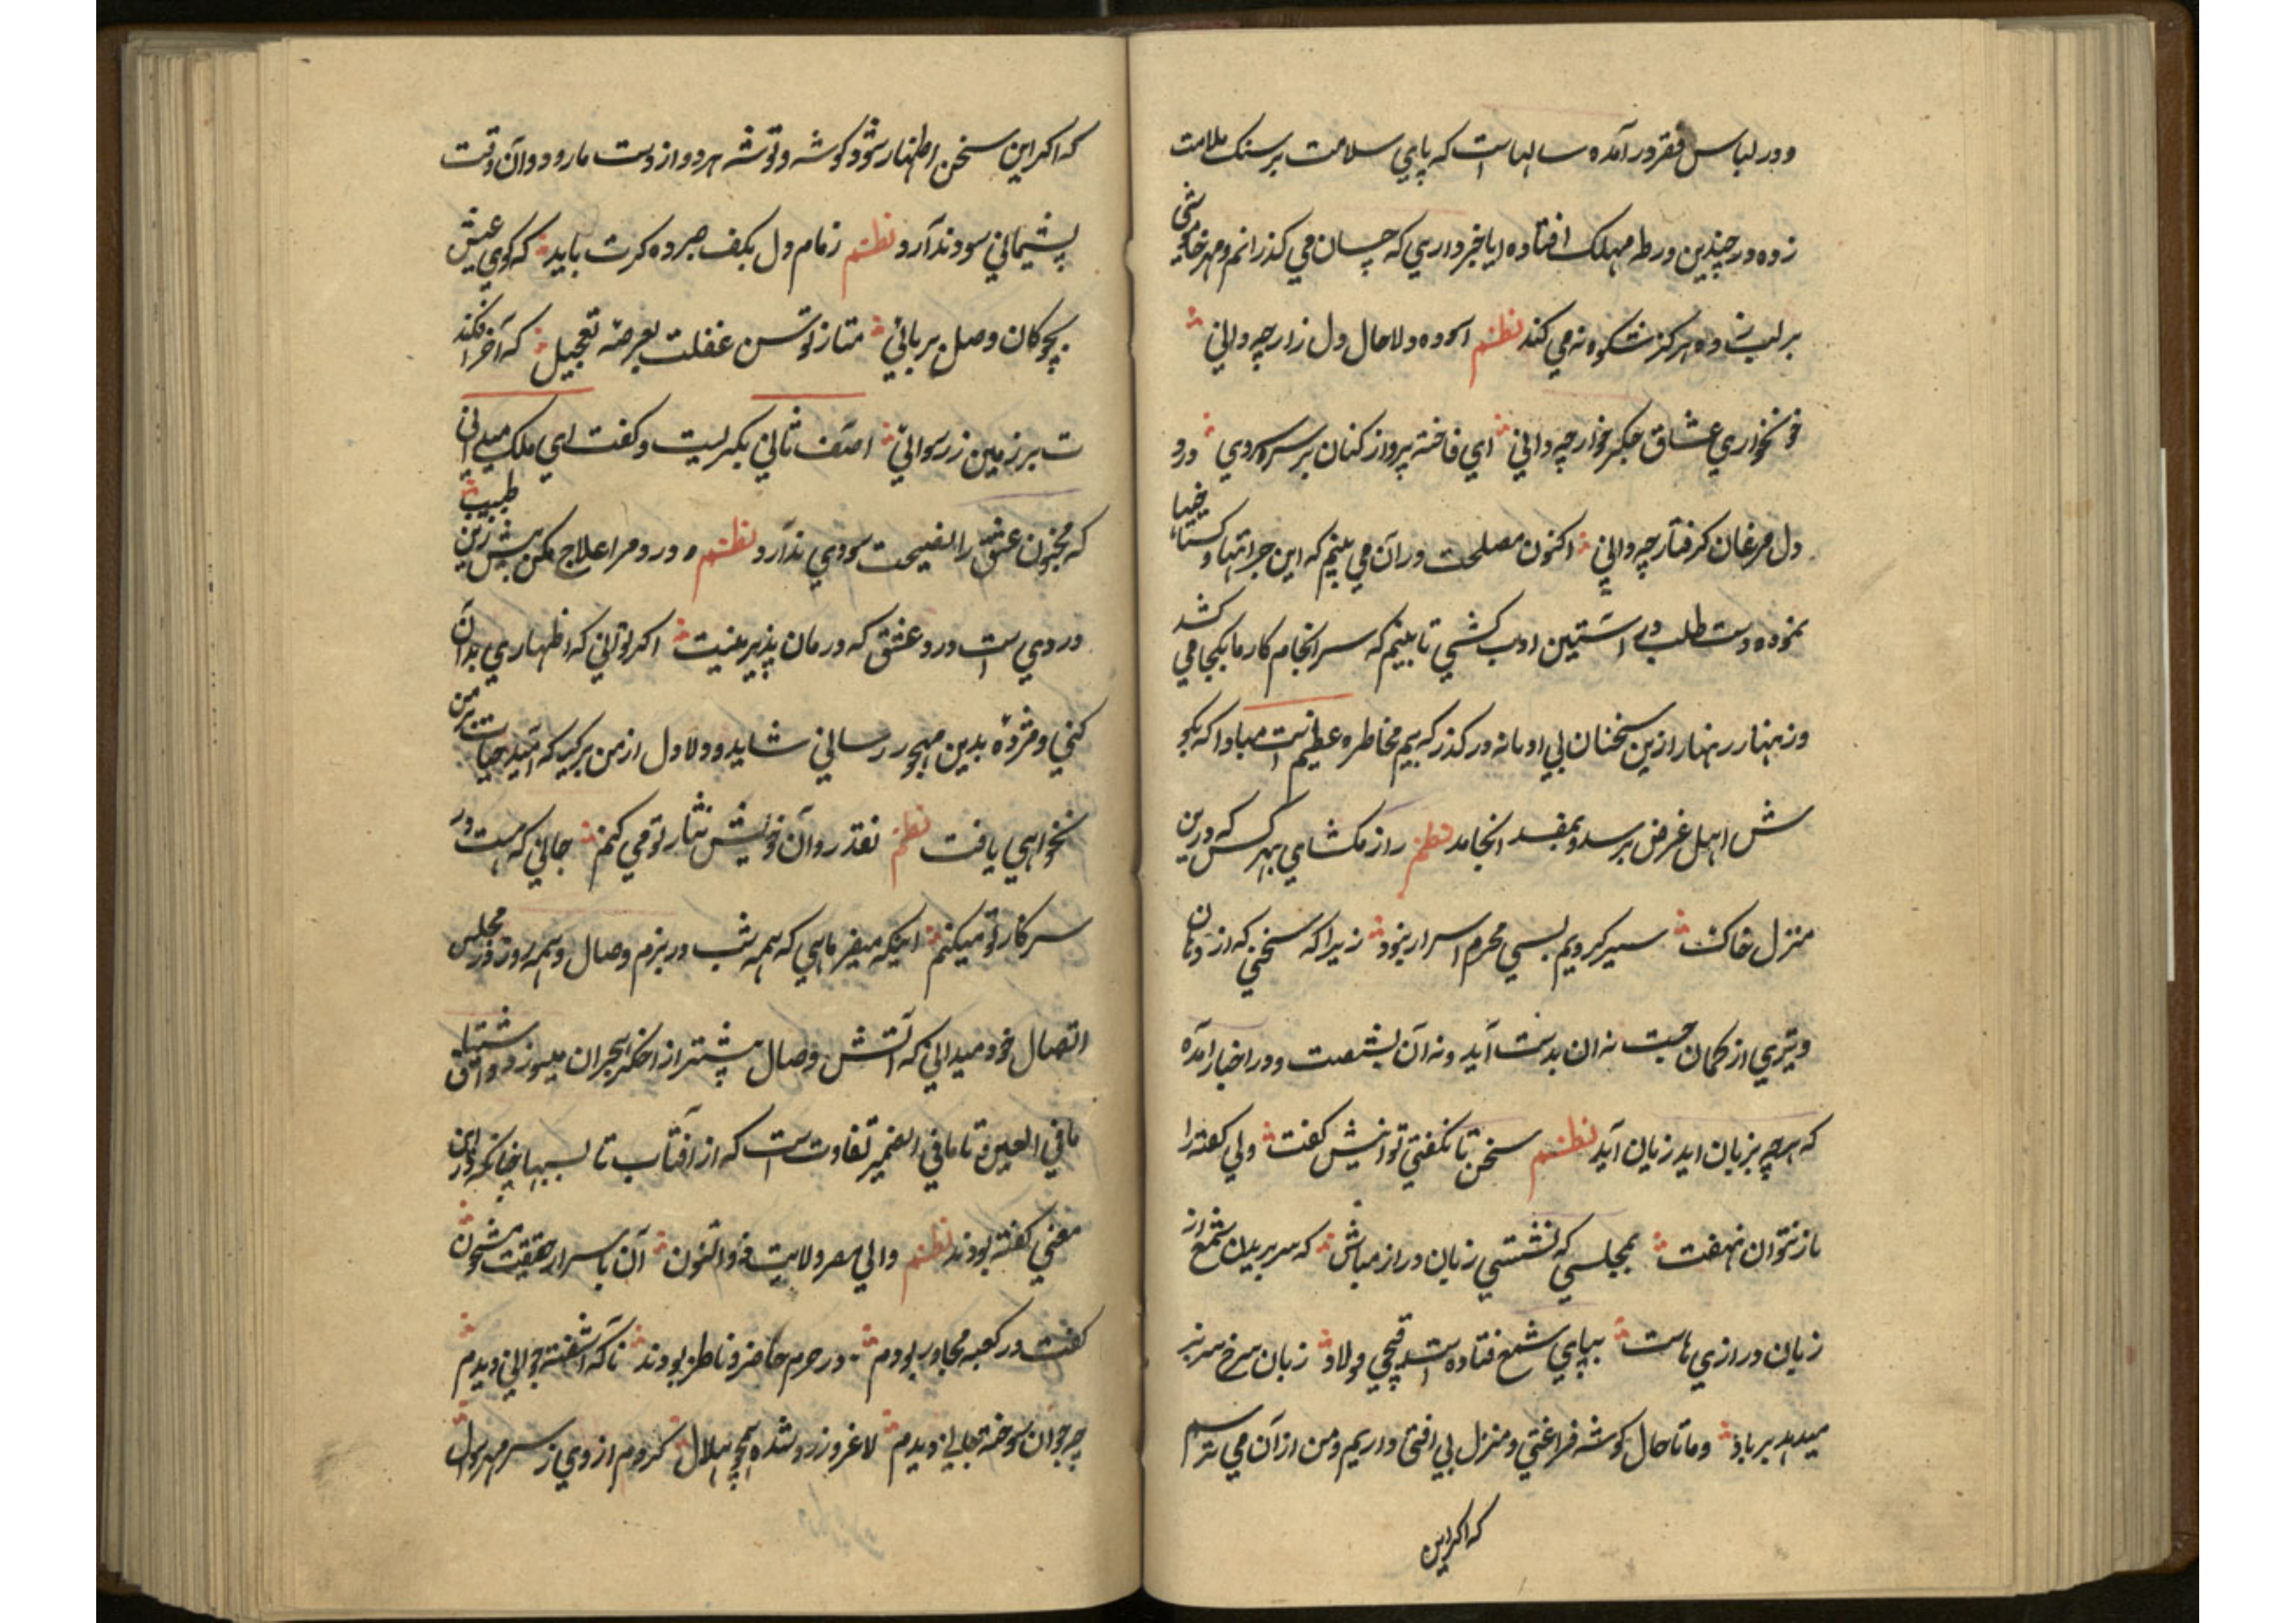 ودر لباس فقر درآمده سالهاست که پای سلامت بر سنک ملامت
زده در چندین ورطه مهلک افتاده ایا خبر داری که چسان می کذرانم و مهر خاموشی
بر لب نهاده هرکز شکوه نه می کند نظم اسوده دلا حال دل زار چه دانی
خونخواری عشاق جکر خوار چه دانی ای فاخته پرواز کنان بر سر سروی درد
دل مرغان کرفتار چه دانی اکنون مصلحت در آن می بینم که این جرأتها و کستاخیها
نموده دست طلب در استین ادب کشی تا ببینم که سرانجام کار ما بکجا می کشد
و زینهار زنهار ازین سخنان بی ادبانه درکذر که بیم مخاطره عظیم است مبادا که بکو
ش اهل غرض برسد و بمفسد انجامد نظم راز مکشای بهر کس که درین
منزل خاک سیر کردیم بسی محرم اسرار نبود زیرا که سخنی که از دهان
و تیری از کمان جست نه ان بدست آید و نه آن بشصت و در اخبار آمده
که هرچه بزبان اید زیان آید نظم سخن تا نکفتی توانیش کفت ولی کفته را
باز نتوان نهفت بمجلسی که نشستی زبان دراز مباش که سر بریدن شمع از
زبان درازی هاست بپای شمع فتاده است قیچی فولاد زبان سرخ سر سبز
میدهد بر باد و ما تا حال کوشه فراغتی و منزل بی افتی داریم و من از آن می ترسم
که اکر این
که اکر این سخن اظهار شود کوشه و توشه هر دو از دست ما رود و آن وقت
پشیمانی سود ندارد نظم زمام دل بکف صبر ده کرت باید که کوی عیش
بچوکان وصل بربائی متاز توسن غفلت بعرصه تعجیل که آخر افکند
ت بر زمین ز رسوائی اصف ثانی بکریست و کفت ای ملک میدانی
که مجنون عشق را نصیحت سودی ندارد نظم درد مرا علاج مکن بیش زین طبیب
دردی است درد عشق که درمان پذیر نیست اکر توانی که اظهاری بدان
کنی و مژده بدین مهجور رسانی شاید و دلا دل از من برکیر که امید حیات بر من
نخواهی یافت نظم نقد روان خویش نثار تو می کنم جانی که هست در
سر کار تو میکنم اینکه میفرمایی که همه شب در بزم وصال و همه روز در مجلس
اتصال خود میدانی که آتش وصال بیشتر از اخکر هجران میسوزد و اشتیاق
مافی العین تا مافی الضمیر تفاوت است که از آفتاب تا بسها چنانکه درین
معنی کفته بودند نظم والی مصر ولایت ذوالنون آن باسرار حقیقت مشحون
کفت در کعبه مجاور بودم در حرم حاضر و ناظر بودند ناکه آشفته جوانی دیدم
چه جوان سوخته جانی دیدم لاغر و زرد شده همچو هلال کردم از وی ز سر مهر سوال